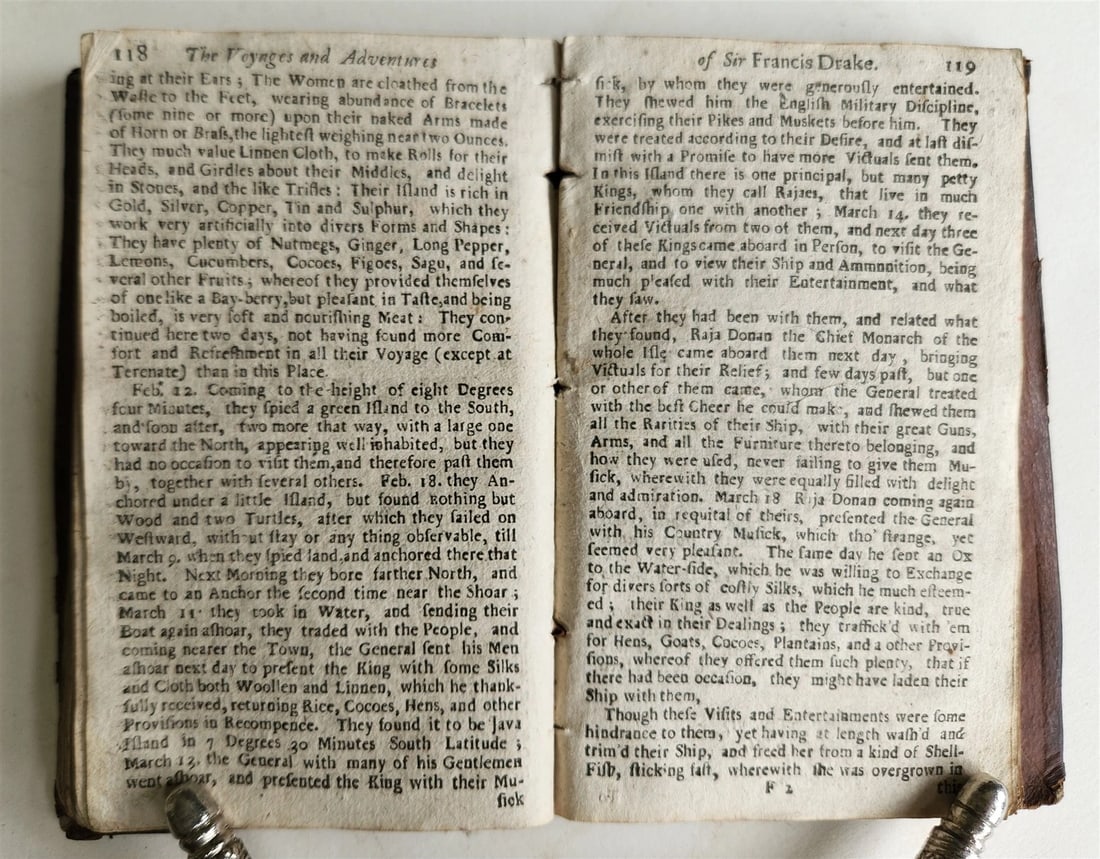 118 The Voyages and Adventures
ing at their Ears ; The Women are cloathed from the
Waſte to the Feet, wearing abundance of Bracelets
(ſome nine or more) upon their naked Arms made
of Horn or Braſs,the lighteſt weighing near two Ounces.
They much value Linnen Cloth, to make Rolls for their
Heads, and Girdles about their Middles, and delight
in Stones, and the like Trifles : Their Iſland is rich in
Gold, Silver, Copper, Tin and Sulphur, which they
work very artificially into divers Forms and Shapes :
They have plenty of Nutmegs, Ginger, Long Pepper,
Lemons, Cucumbers, Cocoes, Figoes, Sagu, and ſe-
veral other Fruits ; whereof they provided themſelves
of one like a Bay-berry,but pleaſant in Taſte,and being
boiled, is very ſoft and nouriſhing Meat : They con-
tinued here two days, not having found more Com-
fort and Refreſhment in all their Voyage (except at
Terenate) than in this Place.
Feb. 12. Coming to the height of eight Degrees
four Minutes, they ſpied a green Iſland to the South,
and ſoon after, two more that way, with a large one
toward the North, appearing well inhabited, but they
had no occaſion to viſit them,and therefore paſt them
by, together with ſeveral others. Feb. 18. they An-
chored under a little Iſland, but found nothing but
Wood and two Turtles, after which they ſailed on
Weſtward, without ſtay or any thing obſervable, till
March 9. when they ſpied land,and anchored there that
Night. Next Morning they bore farther North, and
came to an Anchor the ſecond time near the Shoar ;
March 11. they took in Water, and ſending their
Boat again aſhoar, they traded with the People, and
coming nearer the Town, the General ſent his Men
aſhoar next day to preſent the King with ſome Silks
and Cloth both Woollen and Linnen, which he thank-
fully received, returning Rice, Cocoes, Hens, and other
Proviſions in Recompence. They found it to be Java
Iſland in 7 Degrees 30 Minutes South Latitude ;
March 13. the General with many of his Gentlemen
went aſhoar, and preſented the King with their Mu-
ſick
of Sir Francis Drake. 119
ſick, by whom they were generouſly entertained.
They ſhewed him the Engliſh Military Diſcipline,
exerciſing their Pikes and Muskets before him. They
were treated according to their Deſire, and at laſt diſ-
miſt with a Promiſe to have more Victuals ſent them.
In this Iſland there is one principal, but many petty
Kings, whom they call Rajaes, that live in much
Friendſhip one with another ; March 14. they re-
ceived Victuals from two of them, and next day three
of theſe Kings came aboard in Perſon, to viſit the Ge-
neral, and to view their Ship and Ammnnition, being
much pleaſed with their Entertainment, and what
they ſaw.
After they had been with them, and related what
they found, Raja Donan the Chief Monarch of the
whole Iſle came aboard them next day, bringing
Victuals for their Relief ; and few days paſt, but one
or other of them came, whom the General treated
with the beſt Cheer he could make, and ſhewed them
all the Rarities of their Ship, with their great Guns,
Arms, and all the Furniture thereto belonging, and
how they were uſed, never failing to give them Mu-
ſick, wherewith they were equally filled with delight
and admiration. March 18 Raja Donan coming again
aboard, in requital of theirs, preſented the General
with his Country Muſick, which tho' ſtrange, yet
ſeemed very pleaſant. The ſame day he ſent an Ox
to the Water-ſide, which he was willing to Exchange
for divers ſorts of coſtly Silks, which he much eſteem-
ed ; their King as well as the People are kind, true
and exact in their Dealings ; they traffick'd with 'em
for Hens, Goats, Cocoes, Plantains, and a other Provi-
ſions, whereof they offered them ſuch plenty, that if
there had been occaſion, they might have laden their
Ship with them,
Though theſe Viſits and Entertainments were ſome
hindrance to them, yet having at length waſh'd and
trim'd their Ship, and freed her from a kind of Shell-
Fiſh, ſticking faſt, wherewith ſhe was overgrown in
F 2 this